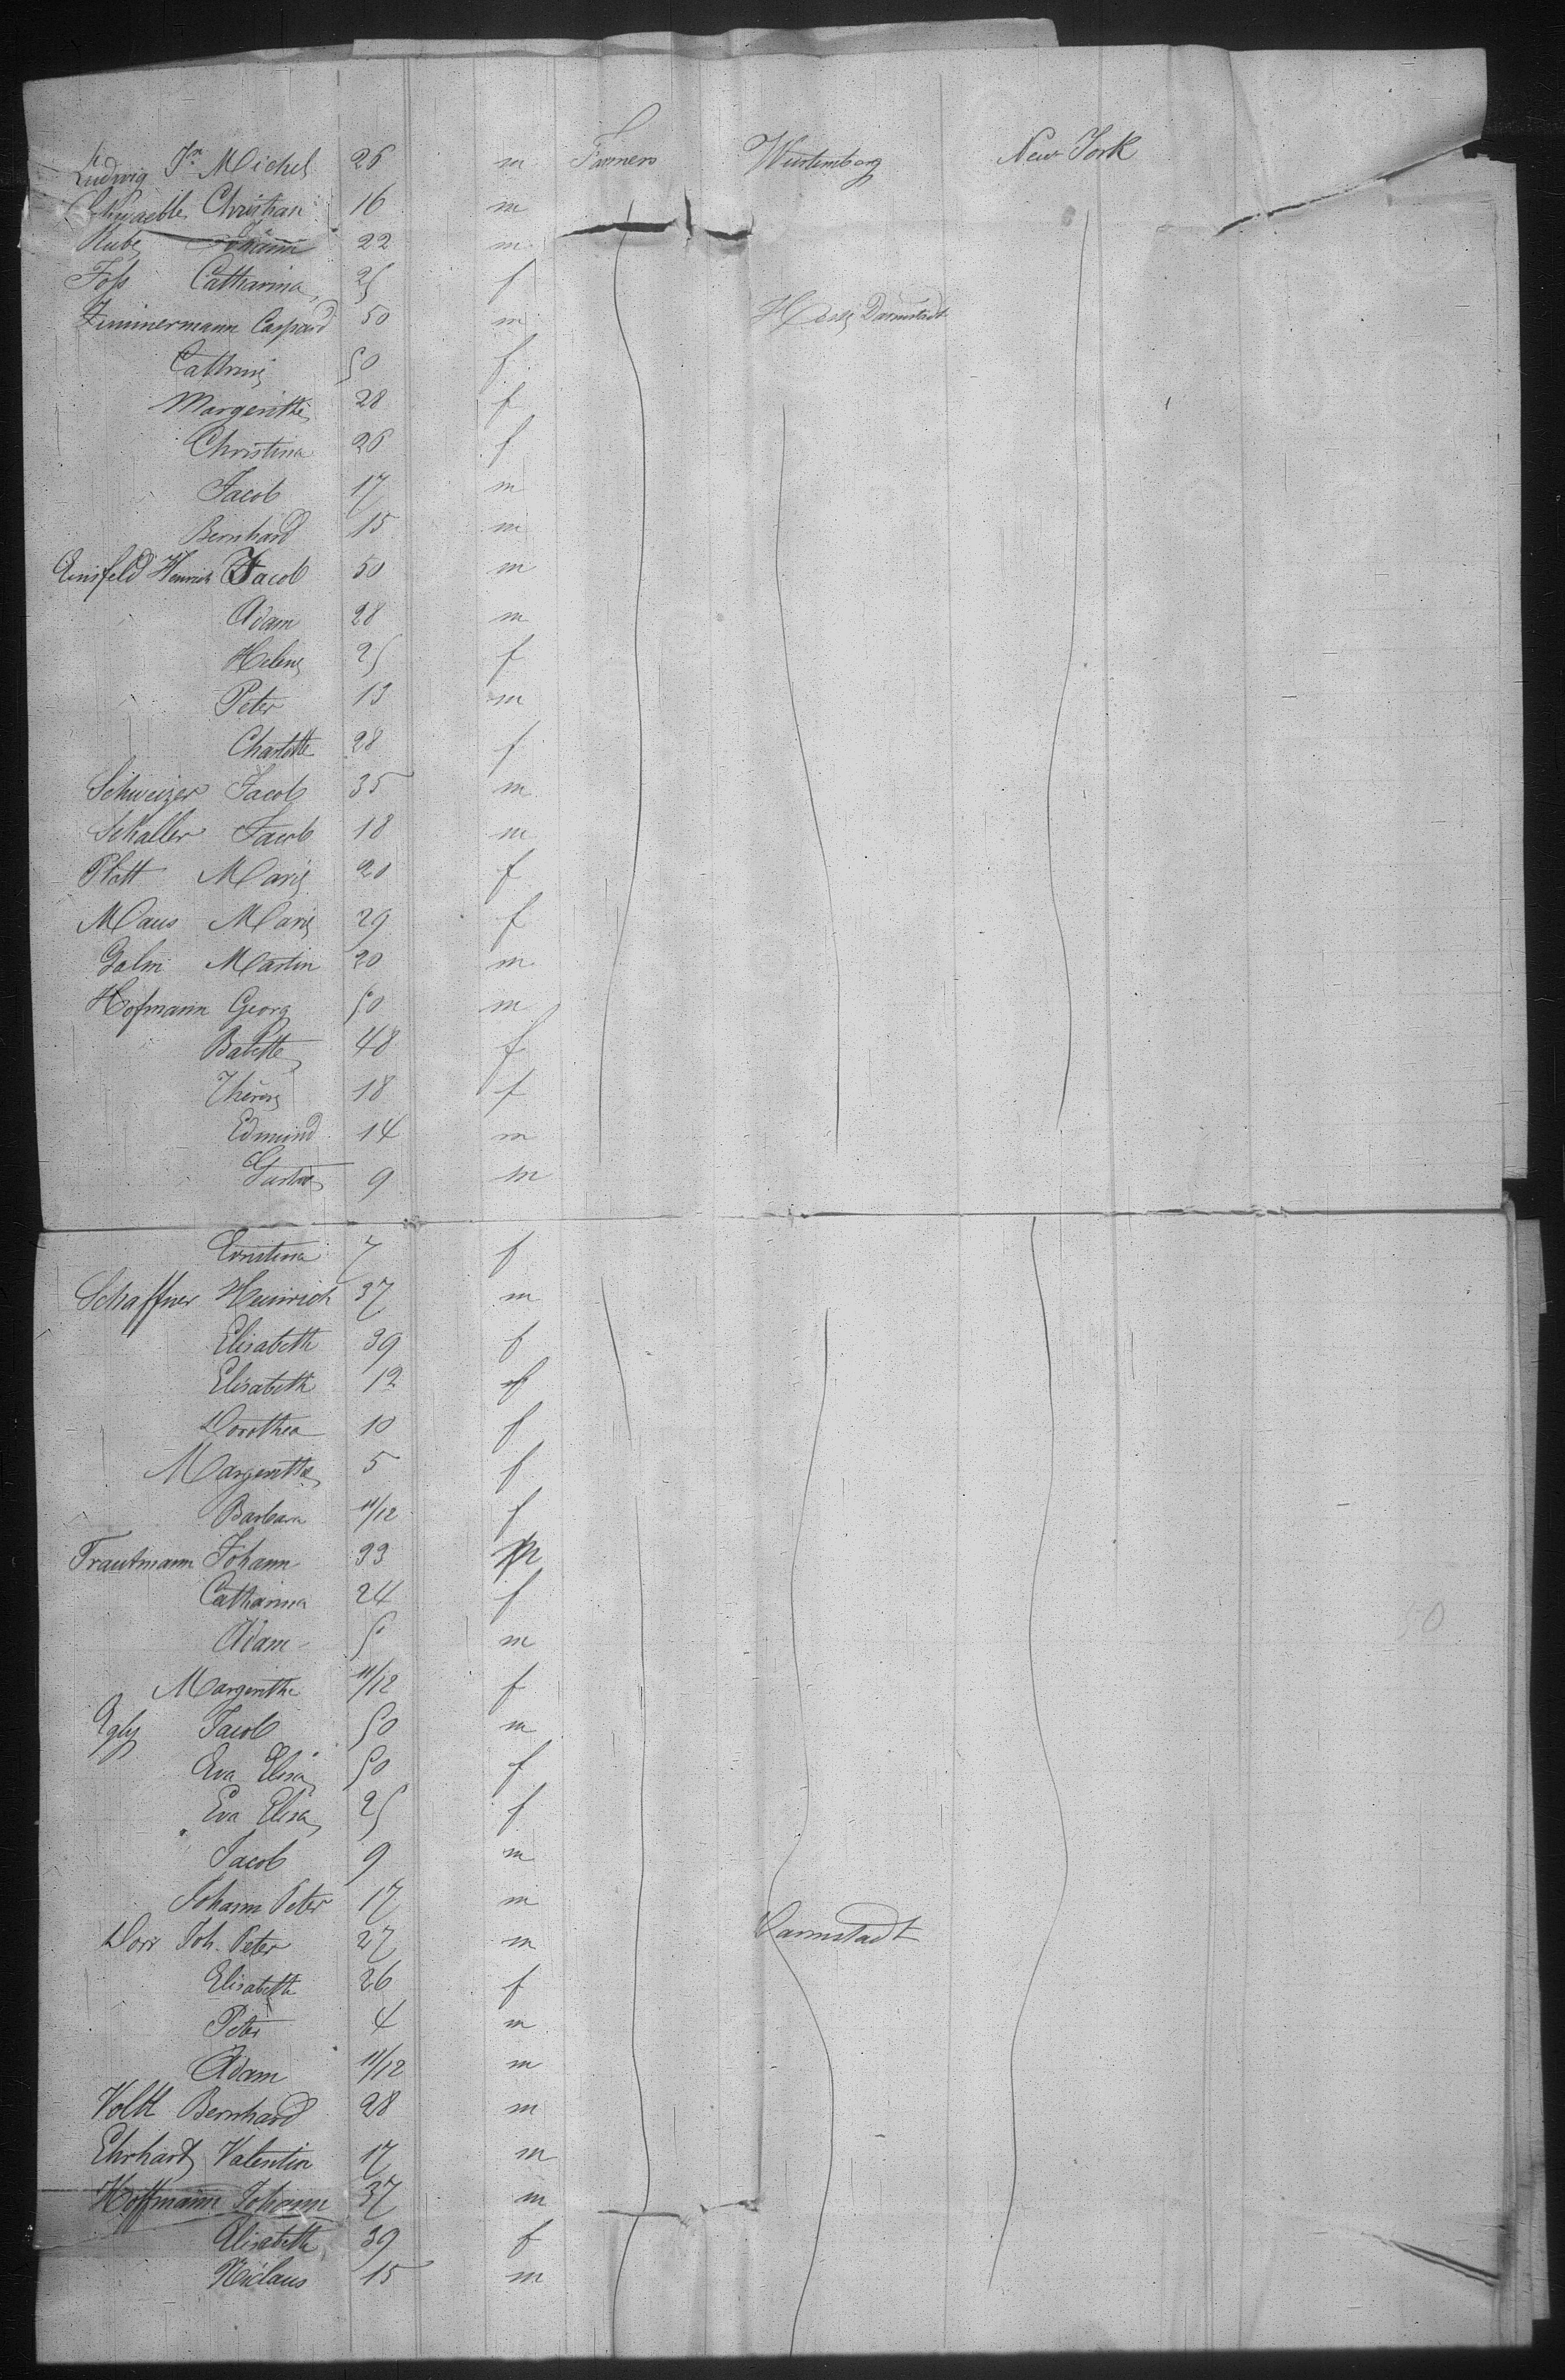 Ludwig Jr Michel 26 m Farmers Wurtemberg New York
Christian 16 m
Johann 22 m
Foss Catharina 25 f
Zimmermann Caspard 50 m Darmstadt
50 f
Margerithe 28 f
Christina 26 f
Jacob 17 m
Bernhard 15 m
Einsfeld Jacob 50 m
Adam 28 m
Helene 25 f
Peter 13 m
Charlotte 28 f
Schweizer Jacob 35 m
Schaller Jacob 18 m
Platt Marie 20 f
Maus Marie 29 f
Martin 20 m
Hofmann Georg 50 m
Babette 48 f
18 f
Edmund 14 m
Gustav 9 m
7 f
Schaffner Heinrich 37 m
Elisabeth 39 f
Elisabeth 12 f
Dorothea 10 f
Margerittha 5 f
Barbara 11/12 f
Trautmann Johann 33 m
Catharina 24 f
Adam 5 m
Margerithe 11/12 f
Egly Jacob 50 m
Eva Elisa 50 f
Eva Elisa 25 f
Jacob 9 m
Johann Peter 17 m
Dorr Joh. Peter 27 m Darmstadt
Elisabeth 26 f
Peter 4 m
Adam 11/12 m
Bernhard 28 m
Ehrhard Valentin 17 m
Hoffmann Johann 37 m
Elisabeth 39 f
Niclaus 15 m